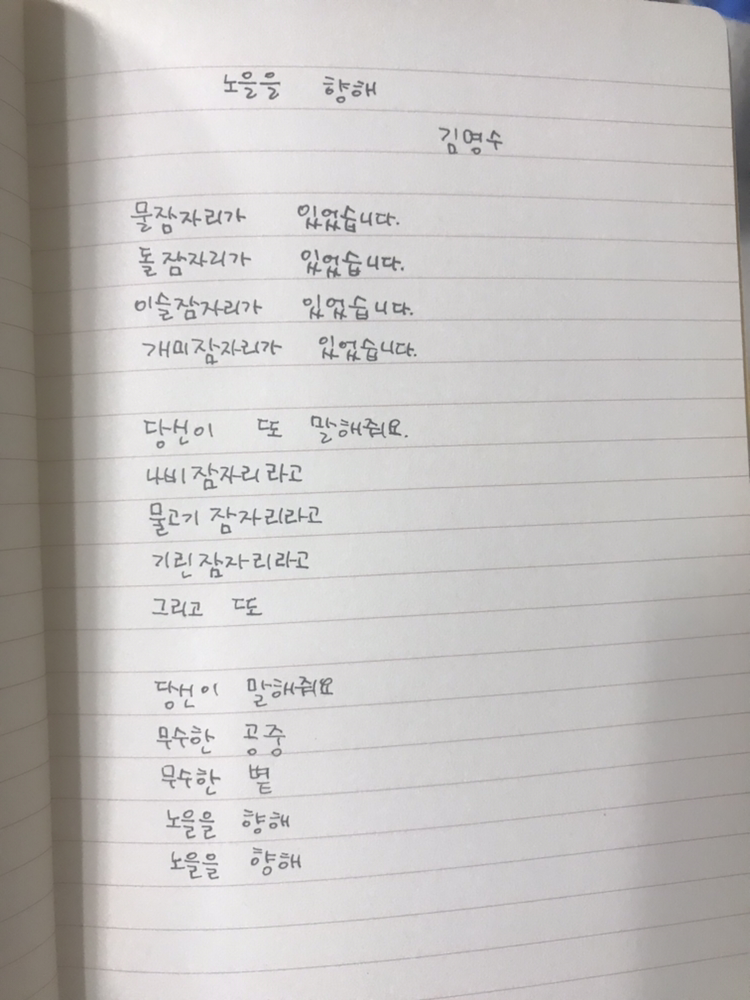 노을을 향해
김영수
물잠자리가 있었습니다.
돌잠자리가 있었습니다.
이슬잠자리가 있었습니다.
개미잠자리가 있었습니다.
당신이 또 말해줘요.
나비잠자리라고
물고기 잠자리라고
기린잠자리라고
그리고 또
당신이 말해줘요
무수한 공중
무수한 볕
노을을 향해
노을을 향해